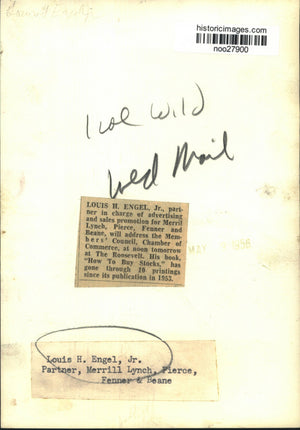 historicimages.com
noo27900
1 col Wild
Wed Mail
LOUIS H. ENGEL, Jr., part-
ner in charge of advertising
and sales promotion for Merrill
Lynch, Pierce, Fenner and
Beane, will address the Mem-
bers' Council, Chamber of
Commerce, at noon tomorrow
at The Roosevelt. His book,
"How To Buy Stocks," has
gone through 10 printings
since its publication in 1953.
MAY
1956
Louis H. Engel, Jr.
Partner, Merrill Lynch, Pierce,
Fenner & Beane